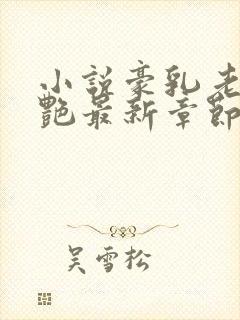 小说豪乳老
艳最新章节
吴雪松